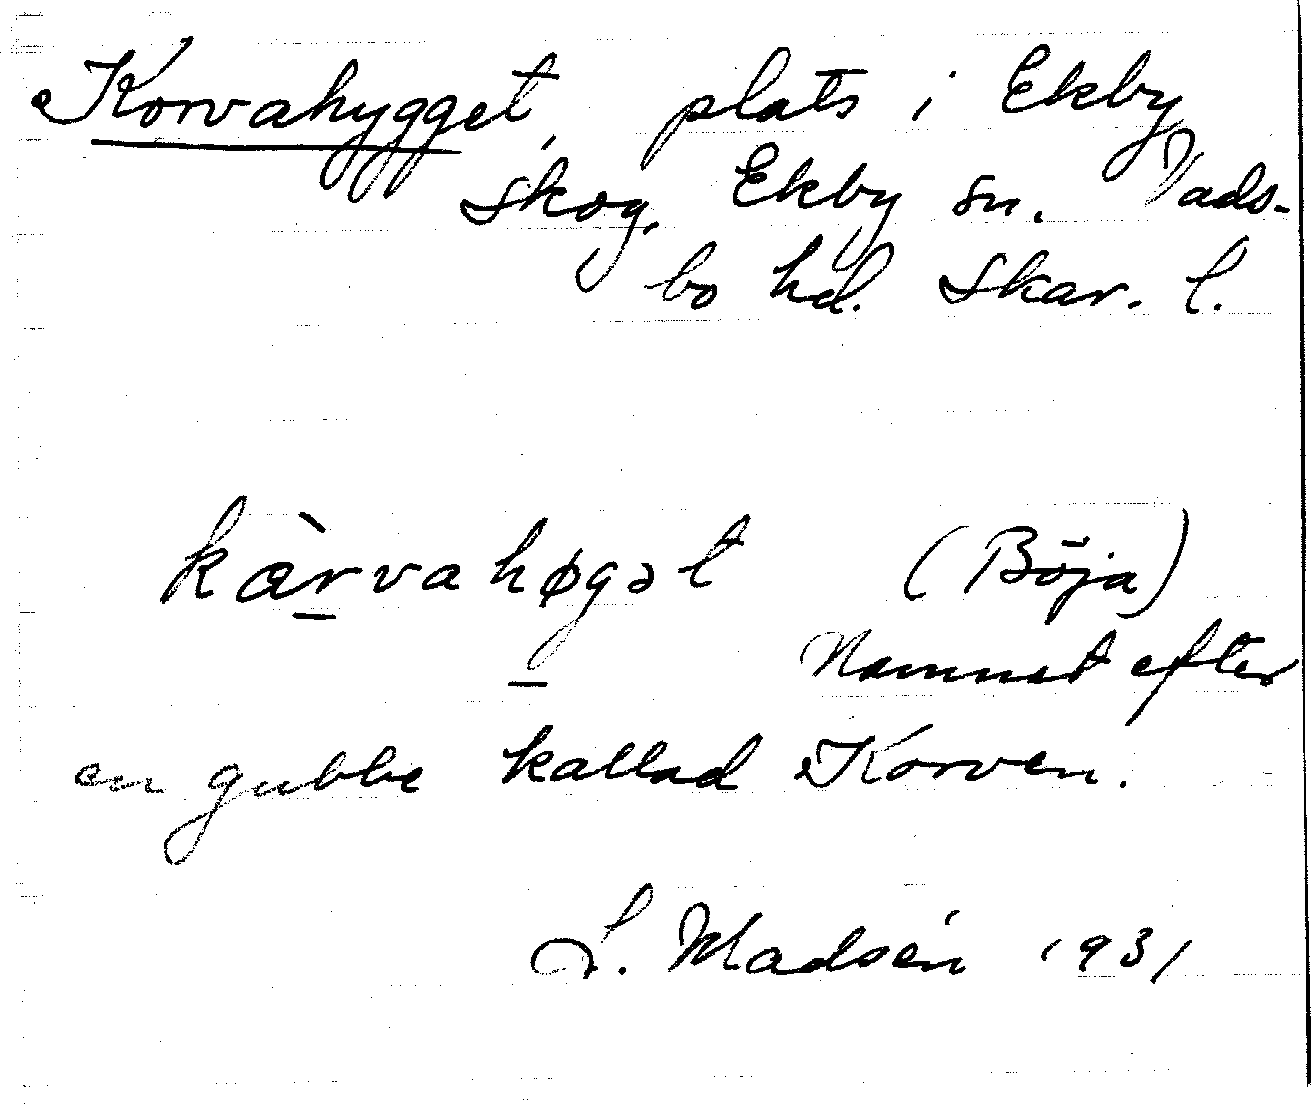 Korvahygget, plats i Ekby
skog. Ekby sn. Vads-
bo hd. Skar. l.
kàrvahøgət (Böja)
Namnet efter
en gubbe kallad Korven.
L. Madsén 1931